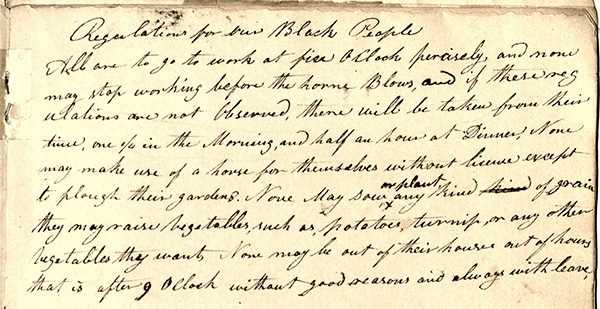 Regulations for our Black People
All are to go to work at five OClock percisely, and none
may stop working before the horne Blows, and if these reg
ulations are not Observed, there will be taken from their
time, one in the Morning, and half an hour at Dinner, None
may make use of a horse for themselves without licence except
to plough their gardens. None May sow or plant any kind kind of grain
they may raise Vegatables, such as potatoes, turnip, or any other
Vegatables they want, None may be out of their houses out of hours
that is after 9 OClock without good reasons and always with leave,